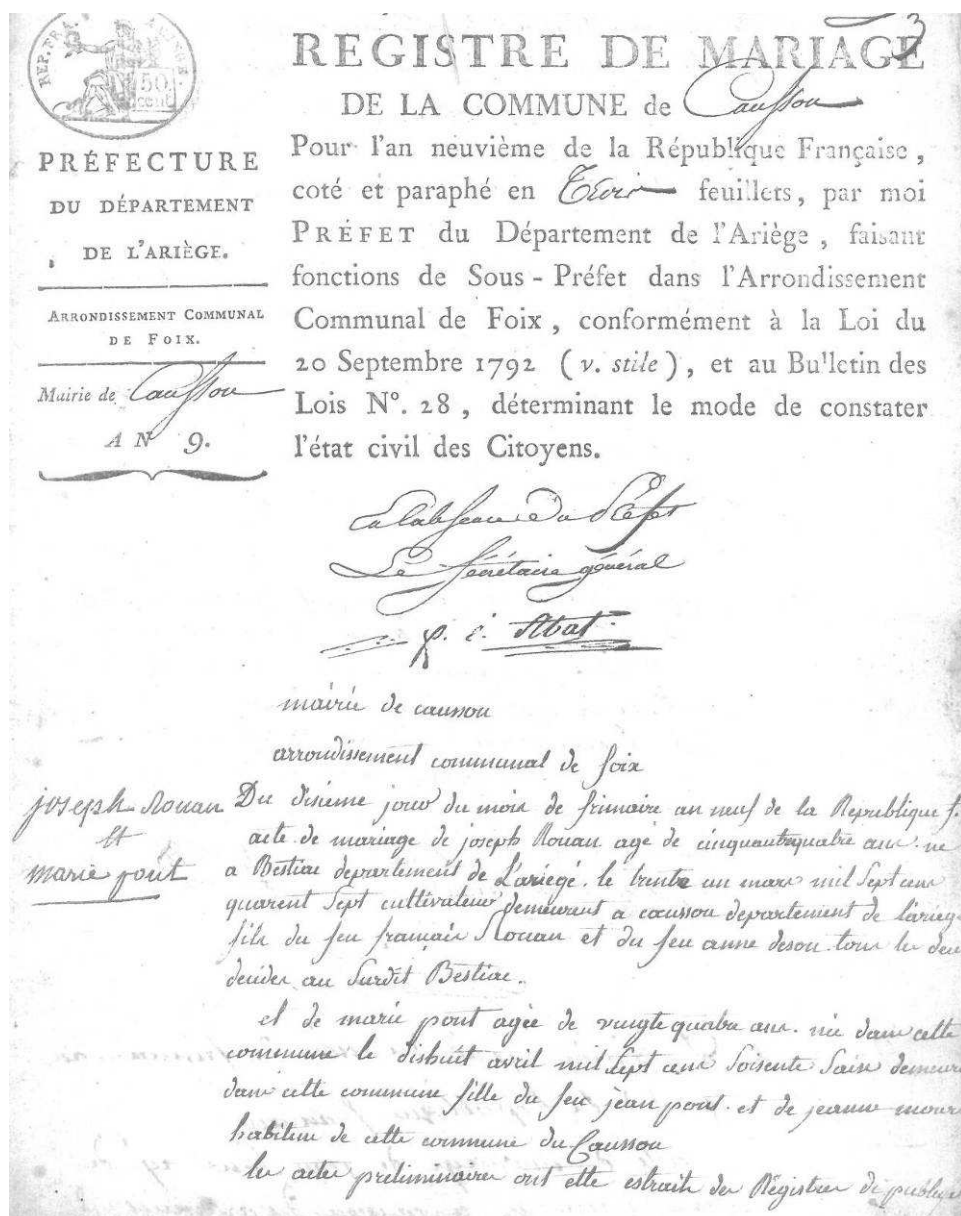 3
REP. FRA.
50
cent.
REGISTRE DE MARIAGE
DE LA COMMUNE de Caussou
PRÉFECTURE
DU DÉPARTEMENT
DE L'ARIÈGE.
ARRONDISSEMENT COMMUNAL
DE FOIX.
Mairie de Caussou
AN 9.
Pour l'an neuvième de la République Française,
coté et paraphé en Trois feuillets, par moi
PRÉFET du Département de l'Ariège, faisant
fonctions de Sous-Préfet dans l'Arrondissement
Communal de Foix, conformément à la Loi du
20 Septembre 1792 (v. stile), et au Bulletin des
Lois N°. 28, déterminant le mode de constater
l'état civil des Citoyens.
En l'absence du Préfet
Le Secrétaire général
p. i. Abat
mairie de caussou
arrondissement communal de foix
joseph Rouan
et
marie pont
Du disième jour du mois de frimaire an neuf de la Republique f.
acte de mariage de joseph Rouan agé de cinquantequatre ans. né
a Bestiac departement de L'ariégé. le trente un mars mil Sept cens
quarent Sept cultivateur demeurent a caussou departement de l'arieg
fils du feu français Rouan et du feu anne desou tous les deu
decides au Surdit Bestiac.
et de marie pont agée de vingtequatre ans. née dans cette
commune le dishuit avril mil Sept cens Soisente Saise demeura
dans cette commune fille du feu jean pont. et de jeanne moure
habitens de cette commune du Caussou
les actes preliminaires ont etté estraits des Régistres de publiqu